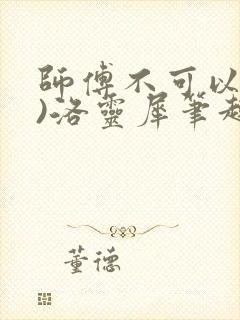 師傅不可以
)洛靈犀筆趣
董德